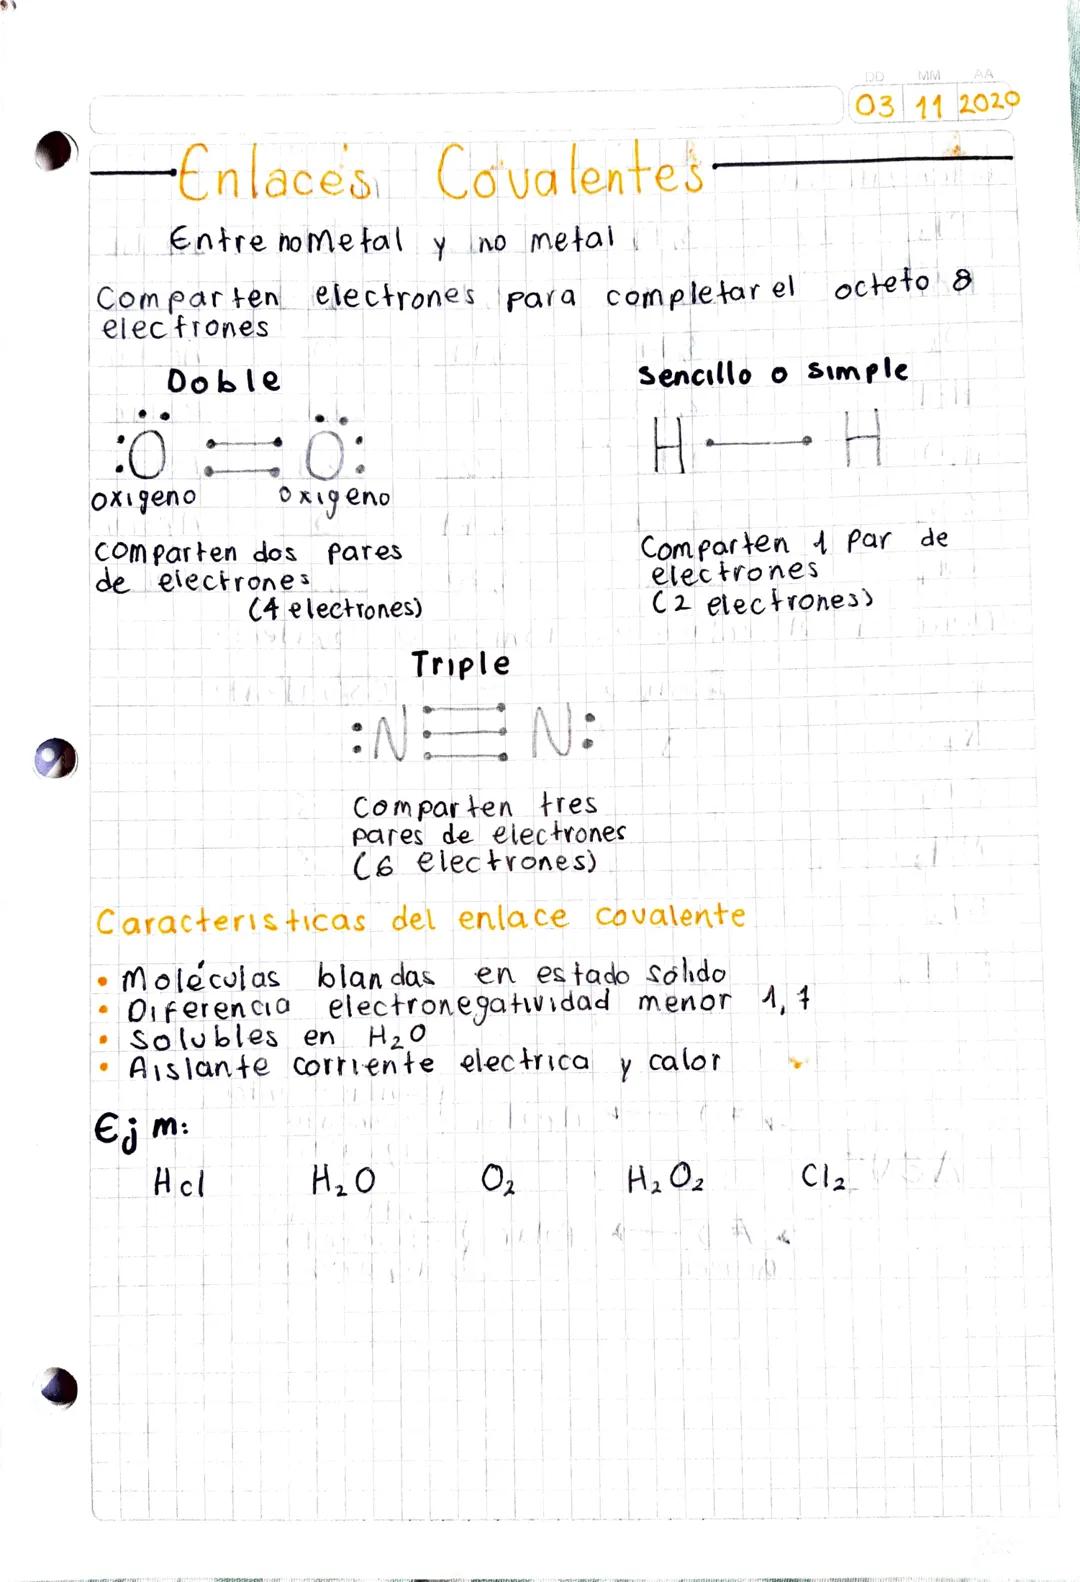 DD MM AA
03 11 2020
Enlaces Covalentes
Entre no metal y no metal
Comparten electrones para completar el octeto 8
electrones
Doble
Sencillo o simple
:Ö = Ö:
H — H
oxigeno oxigeno
comparten dos pares
de electrones
(4 electrones)
Comparten 1 par de
electrones
(2 electrones)
Triple
:N≡N:
Comparten tres
pares de electrones
(6 electrones)
Caracteristicas del enlace covalente
• Moléculas blandas en estado solido
• Diferencia electronegatividad menor 1,7
• Solubles en H₂O
• Aislante corriente electrica y calor
Ejm:
Hcl H₂O O₂ H₂O₂ Cl₂